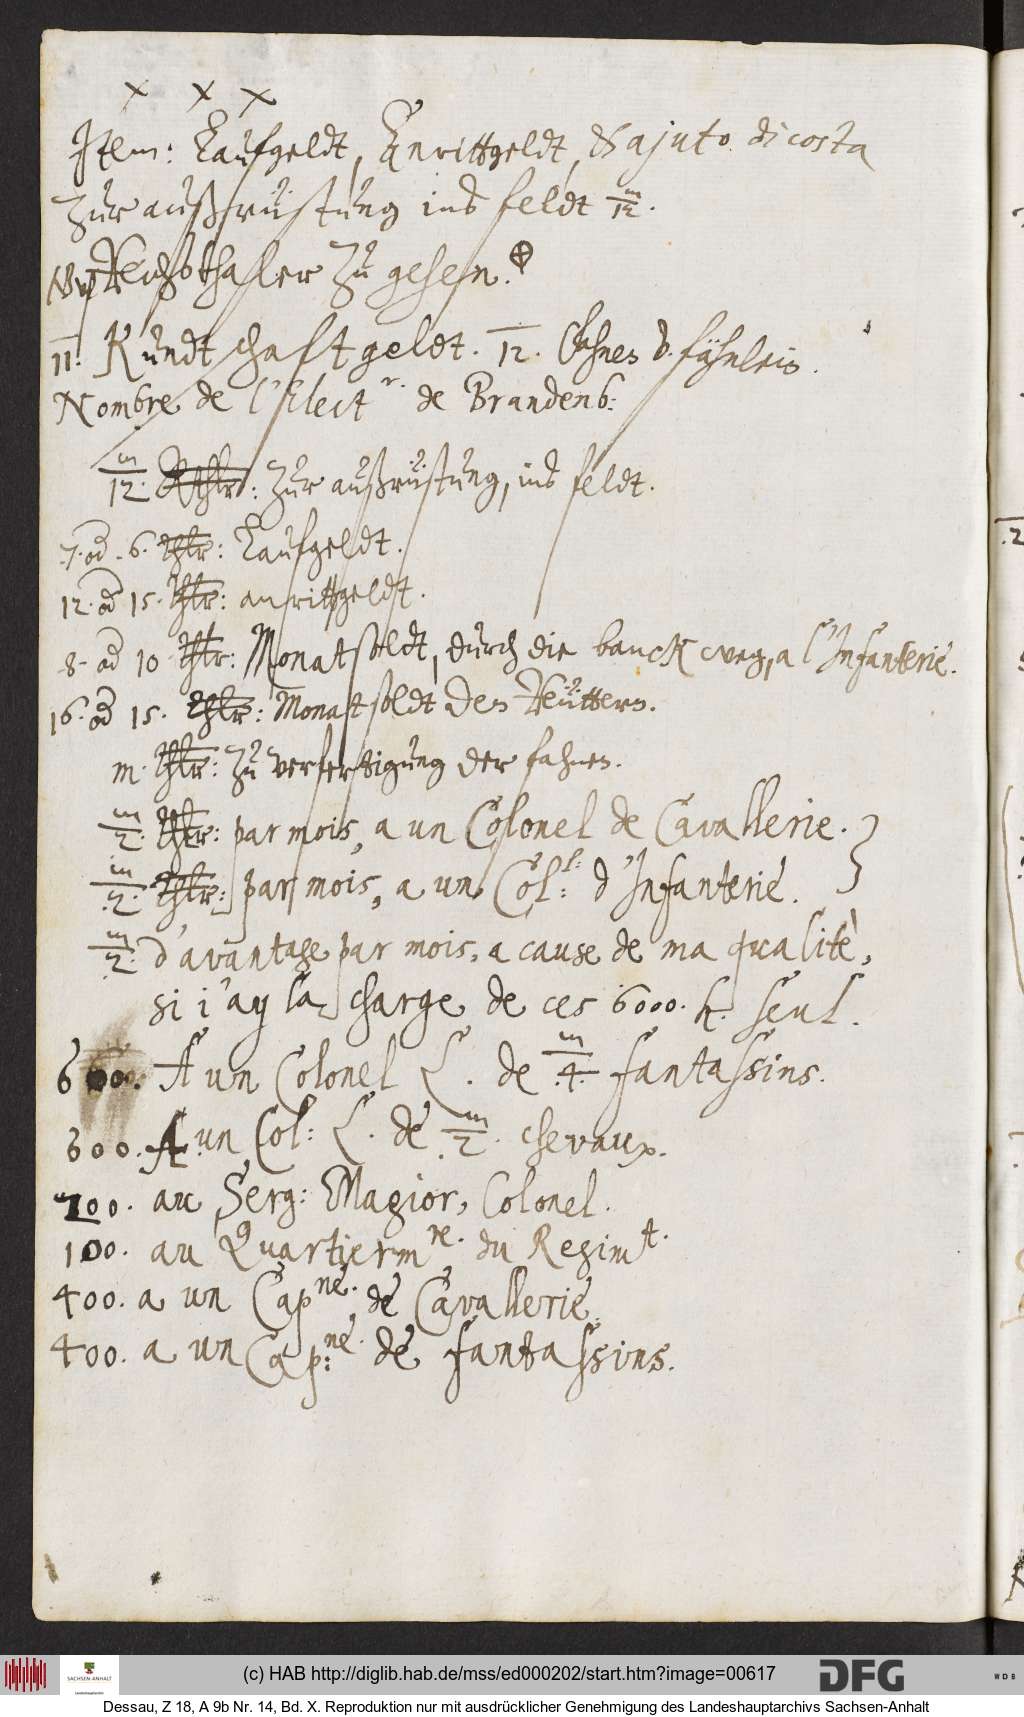 x x x
Item: Laufgeldt, Anrittgeldt, & ajuto di costa
zur außrüstung ins feldt m/12.
Reichsthaler zu geben.
11. Kundtschaftgeldt. 12. Ohnes d. fähnleins.
Nombre de l'Elect.r de Brandenb:
m/12. Rthlr: zur außrüstung, ins feldt.
7. od. 6. thlr: Laufgeldt.
12. od 15. thlr: anrittgeldt.
8. od 10. thlr: Monatsoldt, durch die banck weg, a l'Infanterie.
16. od 15. thlr: Monatsoldt des Reütters.
m. thlr: zu verfertigung der fahnen.
m/2. thlr: par mois, a un Colonel de Cavallerie.
m/2. thlr: par mois, a un Col:l: d'Infanterie.
m/2. d'avantage par mois, a cause de ma qualitè,
si i'ay la charge de ces 6000. h. seul.
600. A un Colonel L. de m/4. fantassins.
600. A un Col: L. de m/2. chevaux.
200. au Serg: Magior, Colonel.
100. au Quartierm.re du Regim.t
400. a un Cap.ne de Cavallerie.
400. a un Cap:ne de fantassins.
SACHSEN-ANHALT
Landeshauptarchiv
(c) HAB http://diglib.hab.de/mss/ed000202/start.htm?image=00617
DFG
WDB
Dessau, Z 18, A 9b Nr. 14, Bd. X. Reproduktion nur mit ausdrücklicher Genehmigung des Landeshauptarchivs Sachsen-Anhalt